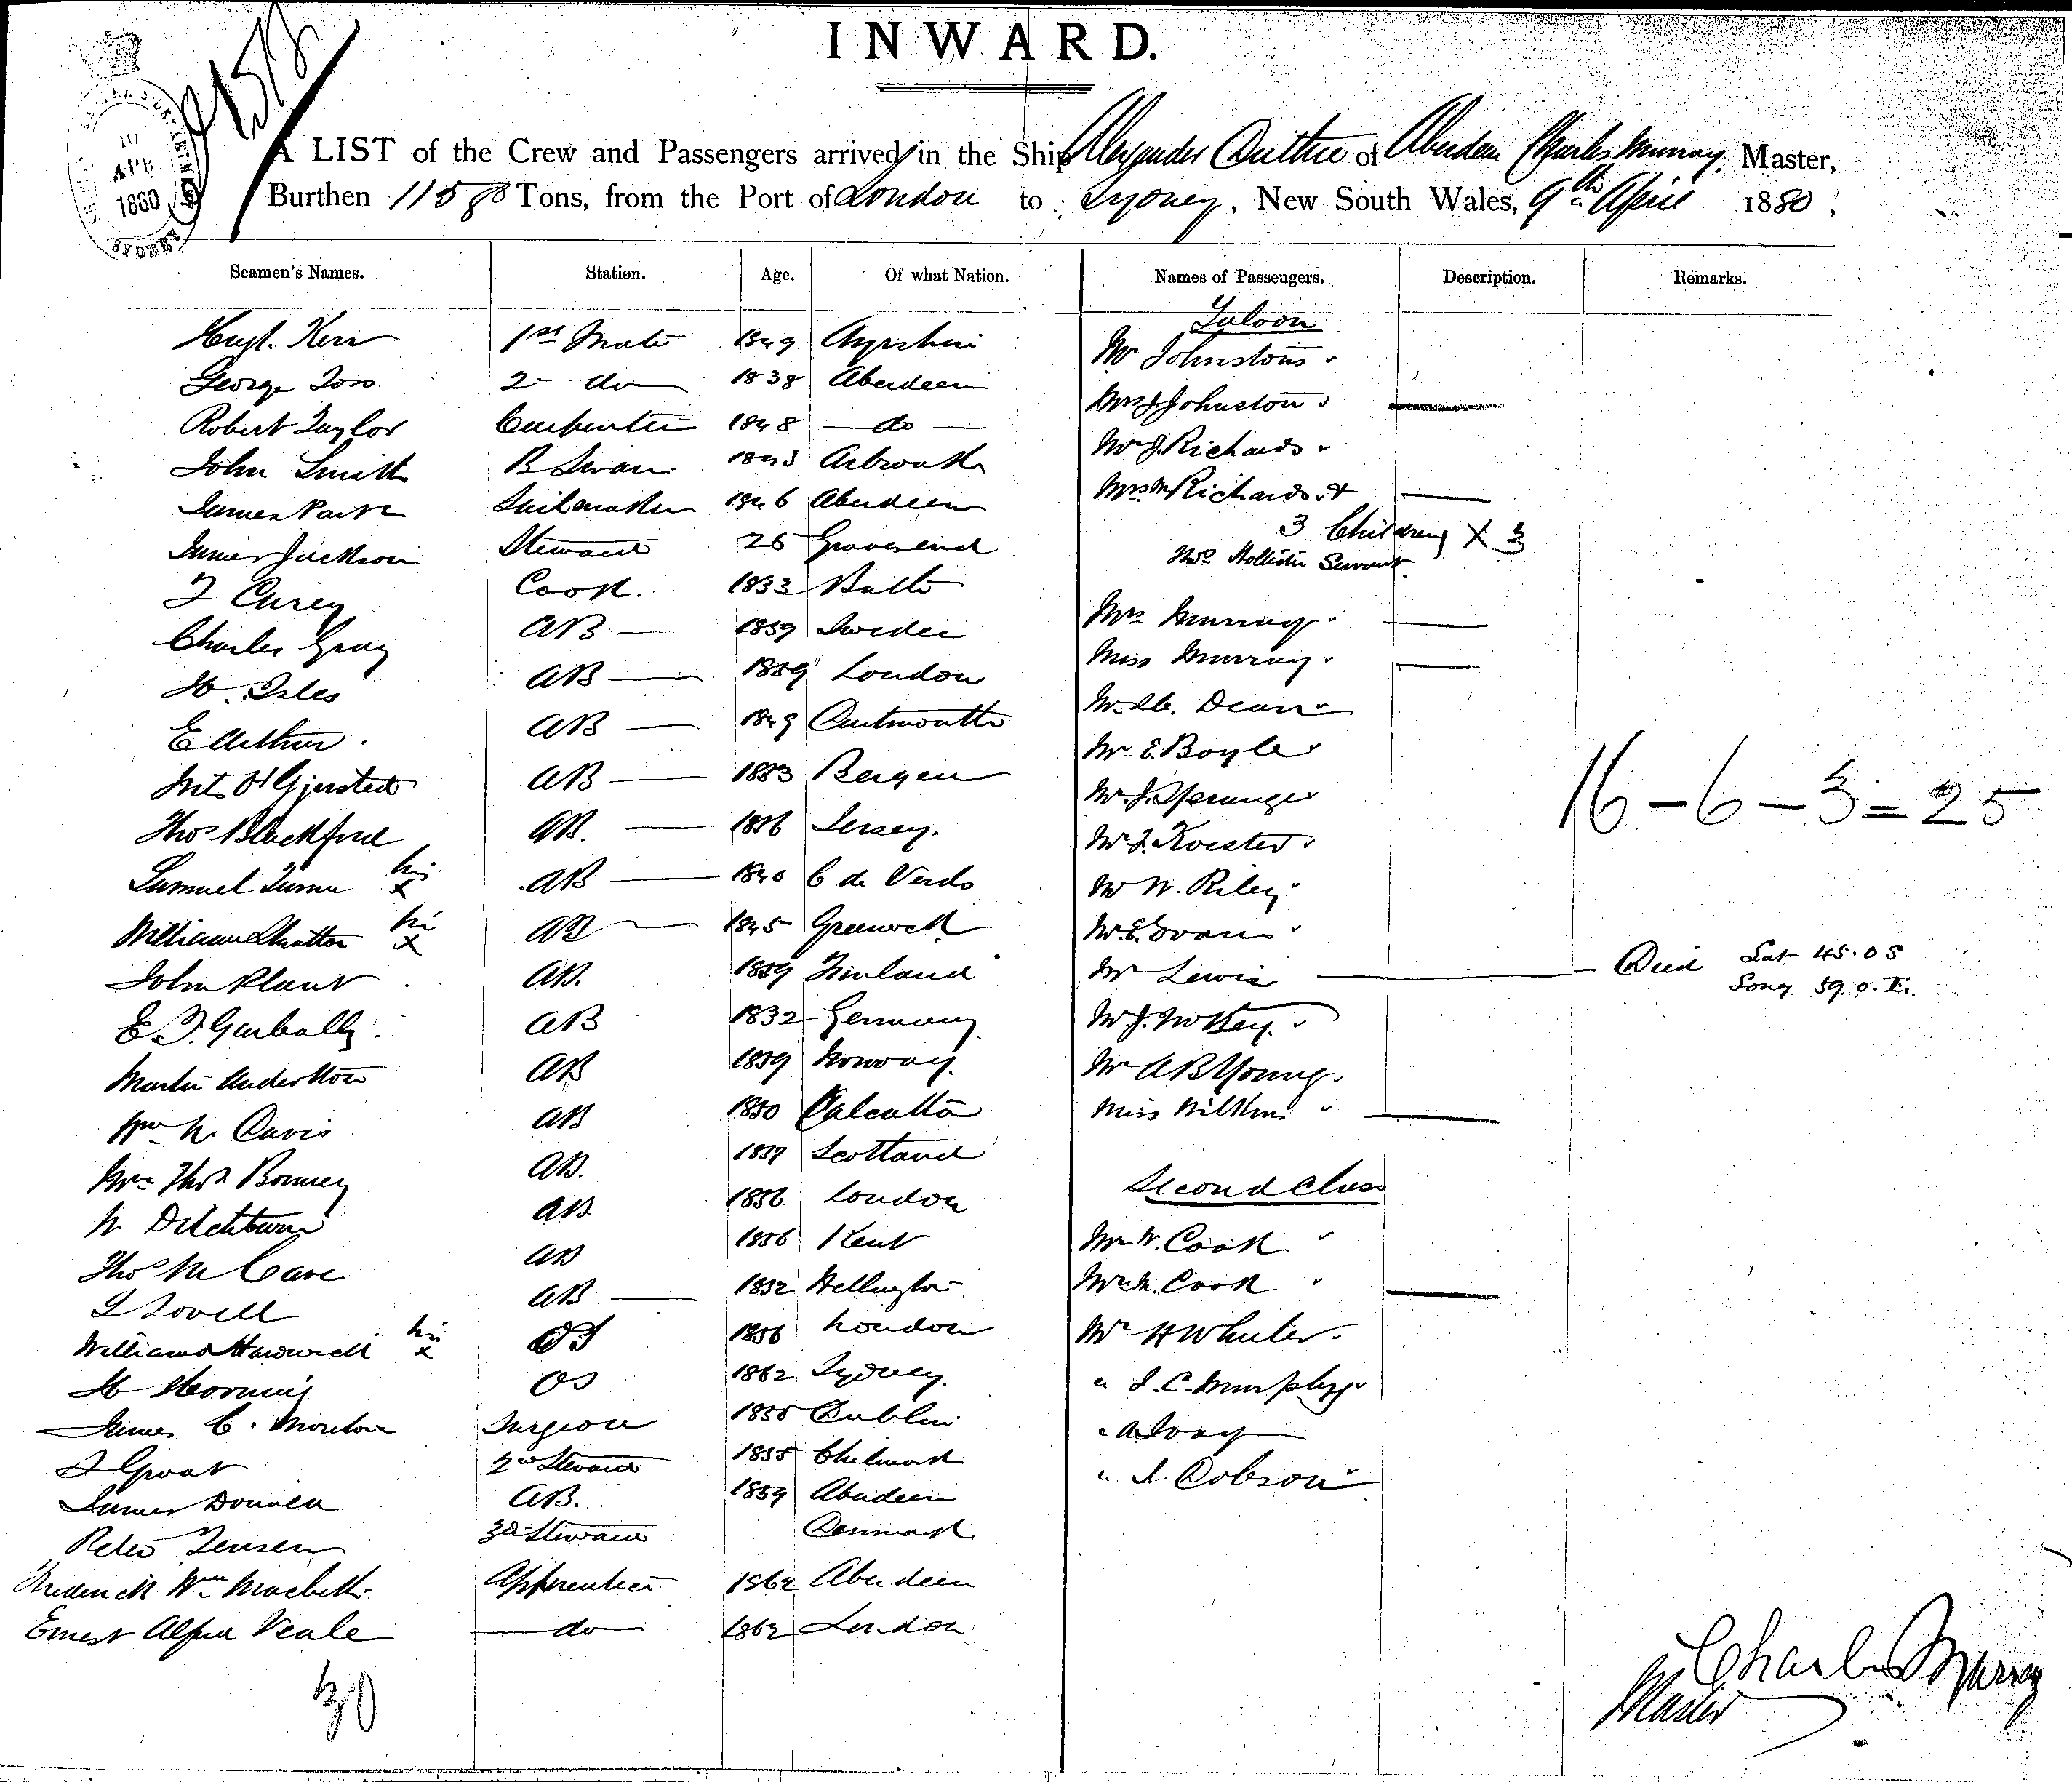 INWARD.
A LIST of the Crew and Passengers arrived in the Ship Alexander Duthie of Aberdeen Charles Murray, Master,
Burthen 1158 Tons, from the Port of London to Sydney, New South Wales, 9th April 1880.
10 APR 1880 SYDNEY
Seamen's Names. Station. Age. Of what Nation. Names of Passengers. Description. Remarks.
Saloon
Hugh Kerr 1st Mate 1849 Ayrshire Mr Johnston
George 2 do 1838 Aberdeen Mrs J Johnston
Robert Taylor Carpenter 1848 do Mr J. Richards
John Smith B Swan 1843 Arbroath Mrs M Richards &
James Park Sailmaker 1846 Aberdeen 3 Children X 3
James Jackson Steward 26 Gravesend Hollister Servant
Carey Cook 1833 Mrs Murray
Charles Gray AB 1859 Sweden Miss Murray
H. Isles AB 1859 London Dean
E Arthur AB 1849 Dartmouth Mr E. Boyle
Gjersted AB Bergen
Thos Blackford AB. 1856 Jersey. Koester
Samuel his x AB 1840 C de Verds Mr W. Riley
William his x AB 1845 Greenock Mr E. Evans
John Plant AB. 1859 Finland Mr Lewis Died Lat 45.05
Long. 59.0.E.
E. F. AB 1832 Germany Mr J. McKey
Martin AB 1859 Norway. Mr A B Young
Wm H. Davis AB 1850 Calcutta Miss Wilkins
Wm Thos Bonney AB. Scotland
Second Class
W Ditchburn AB 1856 London
Thos McCave AB 1856 Kent Mr W. Cook
L Lovell AB 1852 Wellington Mrs M. Cook
William his x OS 1856 London Mr H Wheeler
OS 1862 Sydney. " J. C. Murphy
James C. Surgeon 1855 Dublin "
Groat 2nd Steward 1855 "  Dobson
James AB. 1859 Aberdeen
Peter Jensen 3rd Steward Denmark
Frederick Wm Macbeth Apprentice 1862 Aberdeen
Ernest Alfred Veale do 1862 London
16 - 6 - 3 = 25
30
Charles Murray
Master